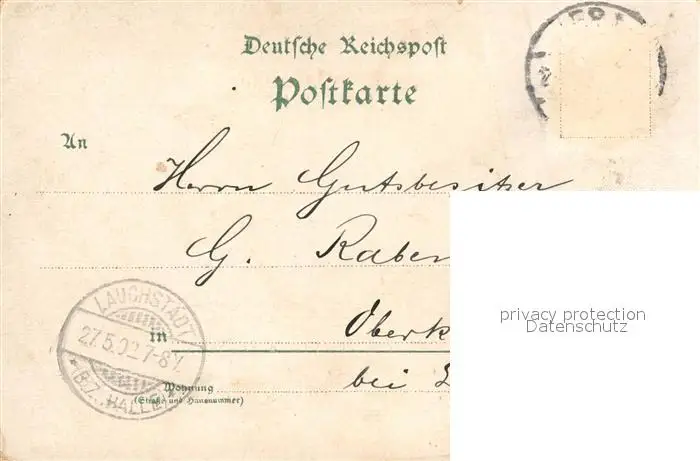 Deutsche Reichspost
Postkarte
An
Herrn Gutsbesitzer
G. Raben
Oberk
in
bei L
Wohnung
(Straße und Hausnummer)
LAUCHSTÄDT
27.5.02 7-8V.
* (BZ. HALLE) *
privacy protection
Datenschutz